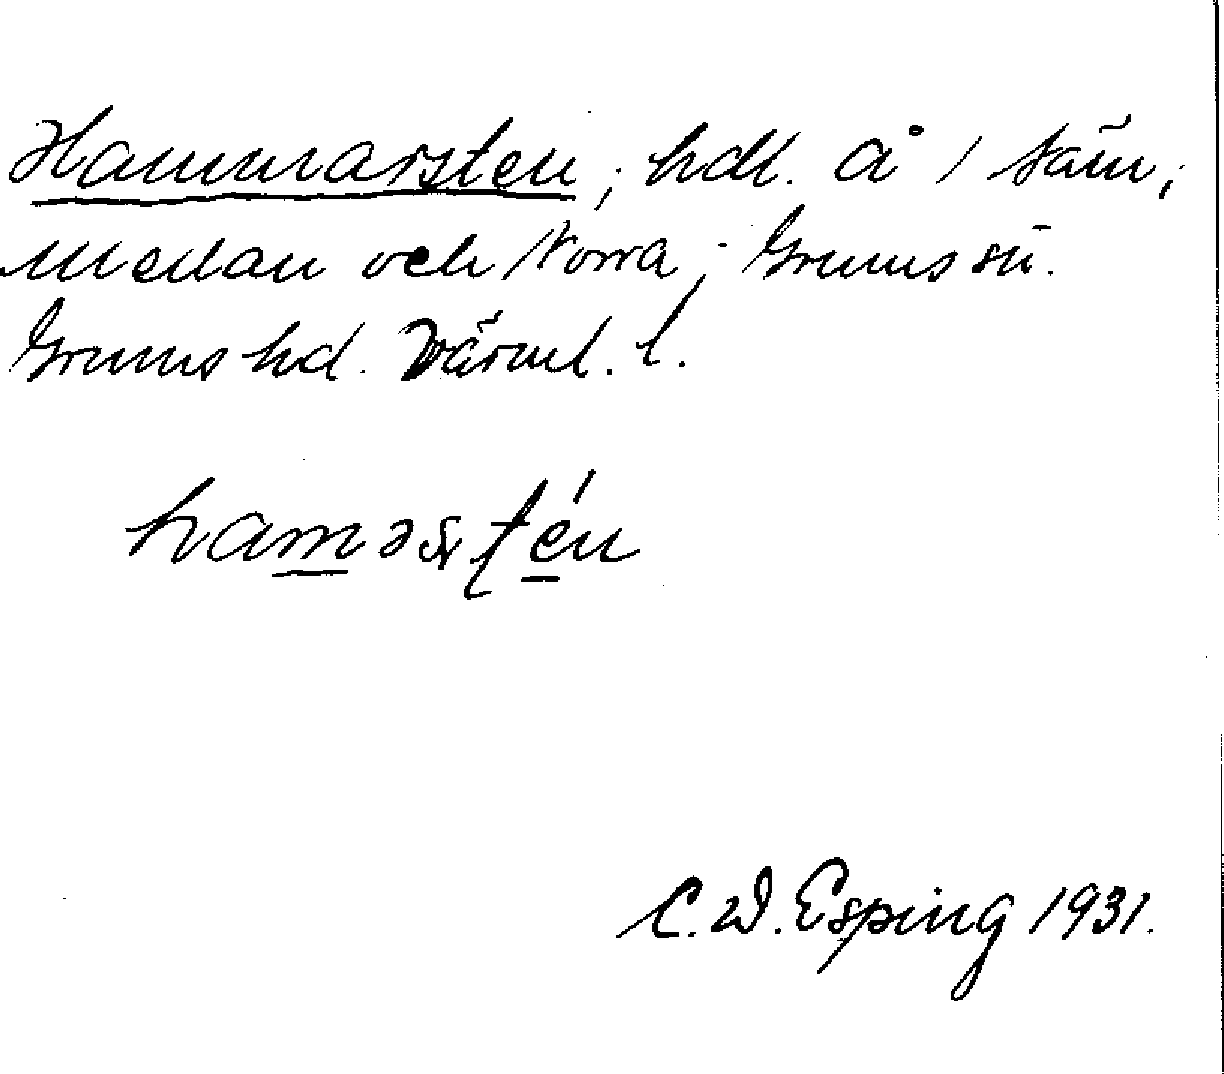 Hammarsten, hdl. å 1 täm,
Medan och Norra, Grums sn.
Grums hd. Värml. l.
haməstén
C. W. Esping 1931.